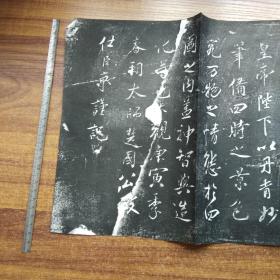 皇帝陛下以丹青妙
筆備四時之景色
究万物之情態於四
圖之内蓋神智與造
化等也大觀庚寅季
春朔太師楚國公致
仕臣京謹記